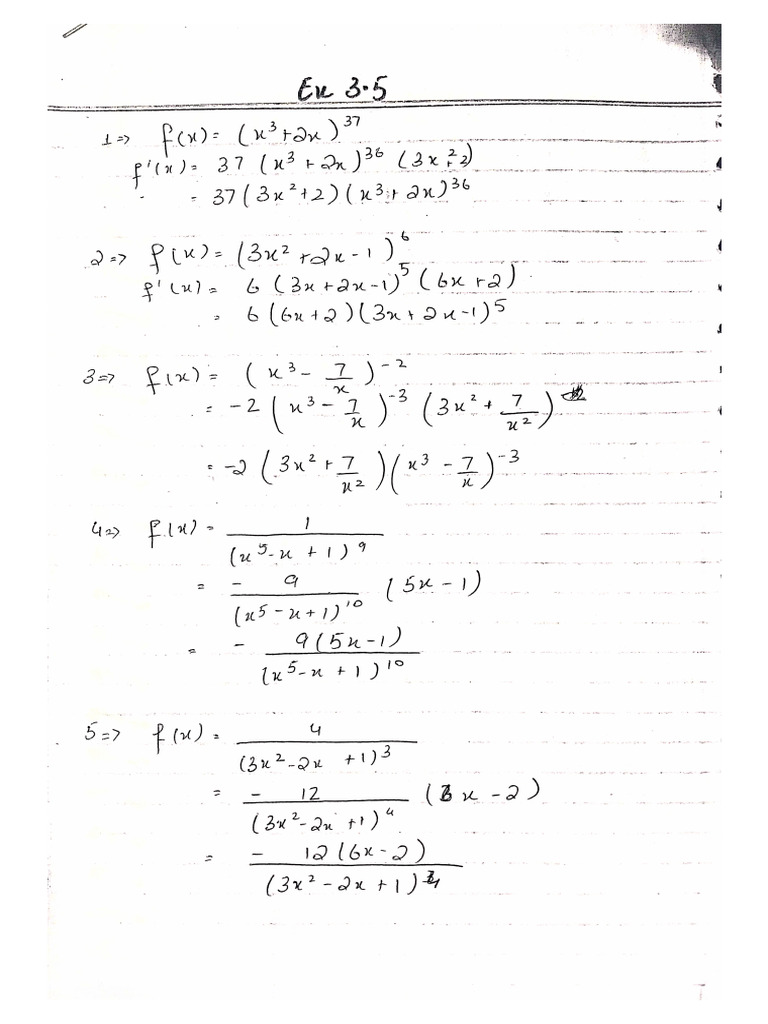 Ex 3.5
1=> f(x) = (x³+2x)³⁷
f'(x) = 37 (x³ + 2x)³⁶ (3x²+2)
= 37(3x²+2)(x³+2x)³⁶
2=> f(x) = (3x² +2x-1)⁶
f'(x) = 6 (3x+2x-1)⁵ (6x+2)
= 6 (6x+2)(3x+2x-1)⁵
3=> f(x) = (x³ - 7/x)⁻²
= -2 (x³ - 7/x)⁻³ (3x² + 7/x²)
= -2 (3x² + 7/x²)(x³ - 7/x)⁻³
4=> f(x) = 1/(x⁵-x+1)⁹
= - 9/(x⁵-x+1)¹⁰ (5x-1)
= - 9(5x-1)/(x⁵-x+1)¹⁰
5=> f(x) = 4/(3x²-2x+1)³
= - 12/(3x²-2x+1)⁴ (6x-2)
= - 12(6x-2)/(3x²-2x+1)⁴